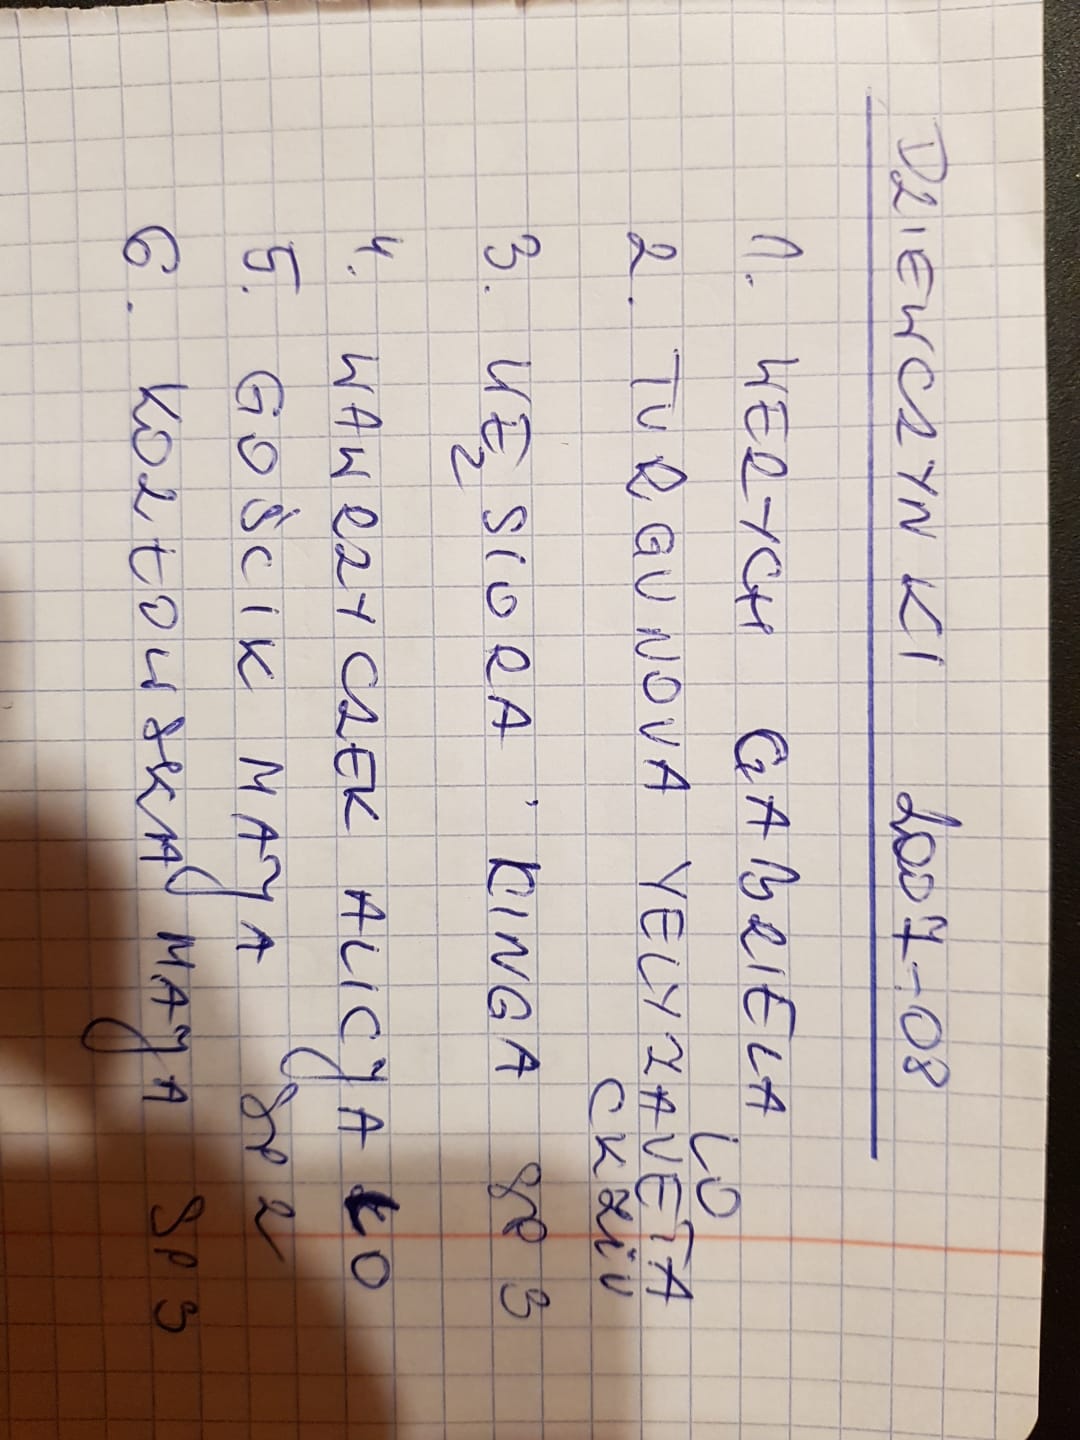 DZIEWCZYNKI 2007-08
1. WERYCH GABRIELA LO
2. TURGUNOVA YELYZAVETA
CKZiU
3. WĘSIORA KINGA SP 3
4. WAWRZYCZEK ALICJA LO
5. GOŚCIK MAJA SP 2
6. KOZŁOWSKA MAJA SP 3